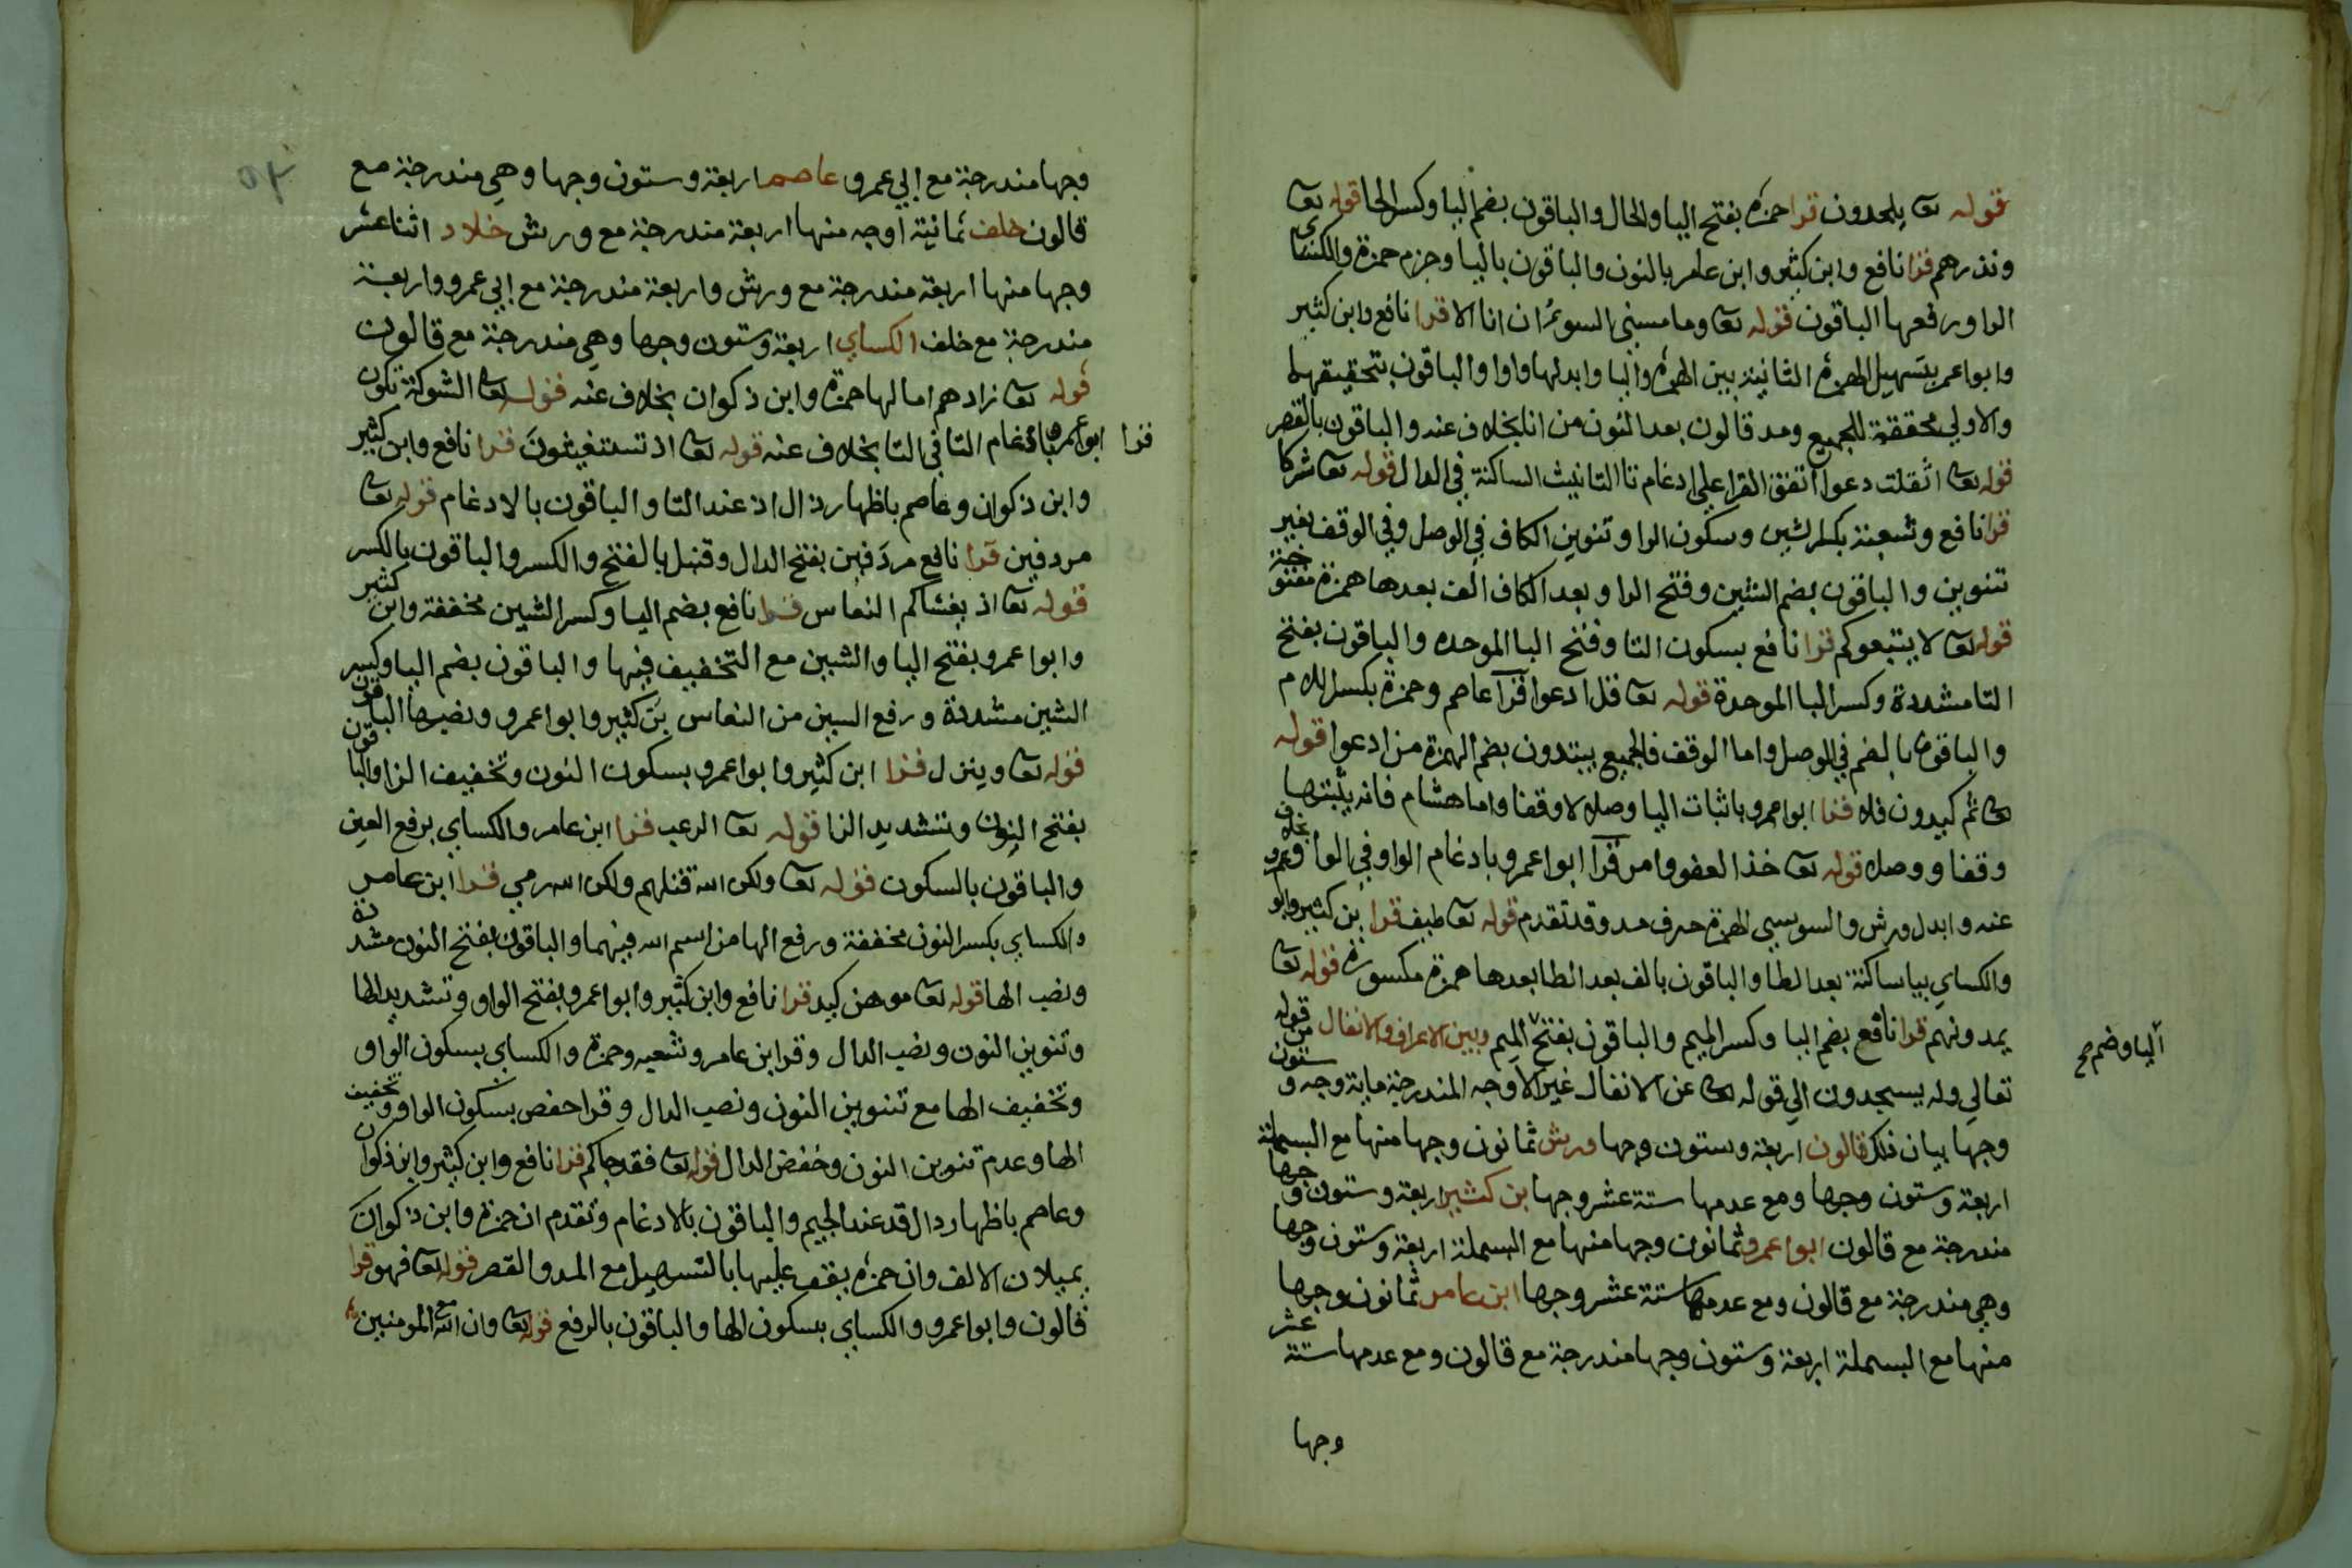 قوله تعا يلحدون قرا حمزة بفتح اليا والحا والباقون بضم اليا وكسر الحا قوله تعا
ونذرهم قرا نافع وابن كثير وابن عامر بالنون والباقون باليا وجزم حمزة والكساي
الرا ورفعها الباقون قوله تعا وما مسني السوء ان انا الا قرا نافع وابن كثير
وابوا عمر بتسهيل الهمزة الثانية بين الهمزة واليا وابدلها واوا والباقون بتحقيقهما
والاولي محققة للجميع ومد قالون بعد النون من انا بخلاف عنه والباقون بالقصر
قوله تعا اثقلت دعوا اتفق القرا علي ادغام تا التانيث الساكنة في الدال قوله تعا شركا
قرا نافع وشعبة بكسر الشين وسكون الرا وتنوين الكاف في الوصل وفي الوقف بغير
تنوين والباقون بضم الشين وفتح الرا وبعد الكاف الف بعدها همزة مفتوحة
قوله تعا لا يتبعوكم قرا نافع بسكون التا وفتح البا الموحده والباقون بفتح
التا مشددة وكسر البا الموحدة قوله تعا قل ادعوا قرآ عاصم وحمزة بكسر اللام
والباقون بالضم في الوصل واما الوقف فالجميع يبتدون بضم الهمزة من ادعوا قوله
تعا ثم كيدون فلا قرا ابوا عمرو باثبات اليا وصلا لا وقفا واما هشام فانه يثبتها
وقفا ووصلا قوله تعا خذ العفو وامر قرآ ابوا عمرو بادغام الواو في الواو بخلاف
عنه وابدل ورش والسوسي الهمزة حرف مد وقد تقدم قوله تعا طيف قرا بن كثير وابو عمرو
والكساي بيا ساكنة بعد الطا والباقون بالف بعد الطا بعدها همزة مكسورة قوله تعا
يمدونهم قرا نافع بضم اليا وكسر الميم والباقون بفتح الميم وبين الاعراف والانفال من قوله
اليا وضم صح
تعالي وله يسجدون الي قوله تعا عن الانفال غير الاوجه المندرجة ماية وجه وستون
وجها بيان ذلك قالون اربعة وستون وجها ورش ثمانون وجها منها مع البسملة
اربعة وستون وجها ومع عدمها ستة عشر وجها بن كثير اربعة وستون وجها
مندرجة مع قالون ابوا عمرو ثمانون وجها منها مع البسملة اربعة وستون وجها
وهي مندرجة مع قالون ومع عدمها ستة عشر وجها ابن عامر ثمانون وجها
منها مع البسملة اربعة وستون وجها مندرجة مع قالون ومع عدمها ستة عشر
وجها
٥٢
وجها مندرجة مع ابي عمرو عاصم اربعة وستون وجها وهي مندرجة مع
قالون خلف ثمانية اوجه منها اربعة مندرجة مع ورش خلاد اثنا عشر
وجها منها اربعة مندرجة مع ورش واربعة مندرجة مع ابي عمرو واربعة
مندرجة مع خلف الكساي اربعة وستون وجها وهي مندرجة مع قالون
قوله تعا زادهم امالها حمزة وابن ذكوان بخلاف عنه قوله تعا الشوكة تكون
قرا ابوا عمرو بادغام التا في التا بخلاف عنه قوله تعا اذ تستغيثون قرا نافع وابن كثير
وابن ذكوان وعاصم باظهار ذال اذ عند التا والباقون بالادغام قوله تعا
مردفين قرا نافع مردَفين بفتح الدال وقنبل بالفتح والكسر والباقون بالكسر
قوله تعا اذ يغشاكم النعاس قرا نافع بضم اليا وكسر الشين مخففة وابن كثير
وابوا عمرو بفتح اليا والشين مع التخفيف فيها والباقون بضم اليا وكسر
الشين مشددة ورفع السين من النعاس بن كثير وابوا عمرو ونصبها الباقون
قوله تعا وينزل قرا ابن كثير وابوا عمرو بسكون النون وتخفيف الزا والباقون
بفتح النون وتشديد الزا قوله تعا الرعب قرا ابن عامر والكساي برفع العين
والباقون بالسكون قوله تعا ولكن الله قتلهم ولكن الله رمي قرا ابن عامر
والكساي بكسر النون مخففة ورفع الها من اسم الله فيهما والباقون بفتح النون مشددة
ونصب الها قوله تعا موهن كيد قرا نافع وابن كثير وابوا عمرو بفتح الواو وتشديد الها
وتنوين النون ونصب الدال وقرا ابن عامر وشعبه وحمزة والكساي بسكون الواو
وتخفيف الها مع تنوين النون ونصب الدال وقرا حفص بسكون الواو وتخفيف
الها وعدم تنوين النون وخفض الدال قوله تعا فقد جاكم قرا نافع وابن كثير وابن ذكوان
وعاصم باظهار دال قد عند الجيم والباقون بالادغام وتقدم ان حمزة وابن ذكوان
يميلان الالف وان حمزة يقف عليها بالتسهيل مع المد والقصر قوله تعا فهو قرا
قالون وابوا عمرو والكساي بسكون الها والباقون بالرفع قوله تعا وان الله مع المومنين